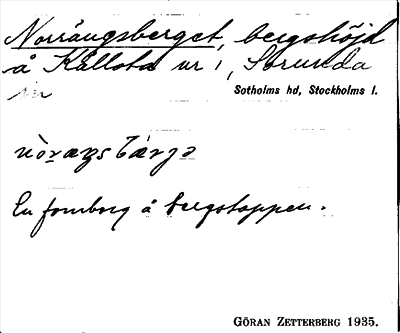 Norrängsberget, bergshöjd
å Kållsta nr 1, Sorunda
sn
Sotholms hd, Stockholms l.
En fornborg å bergstoppen.
GÖRAN ZETTERBERG 1935.